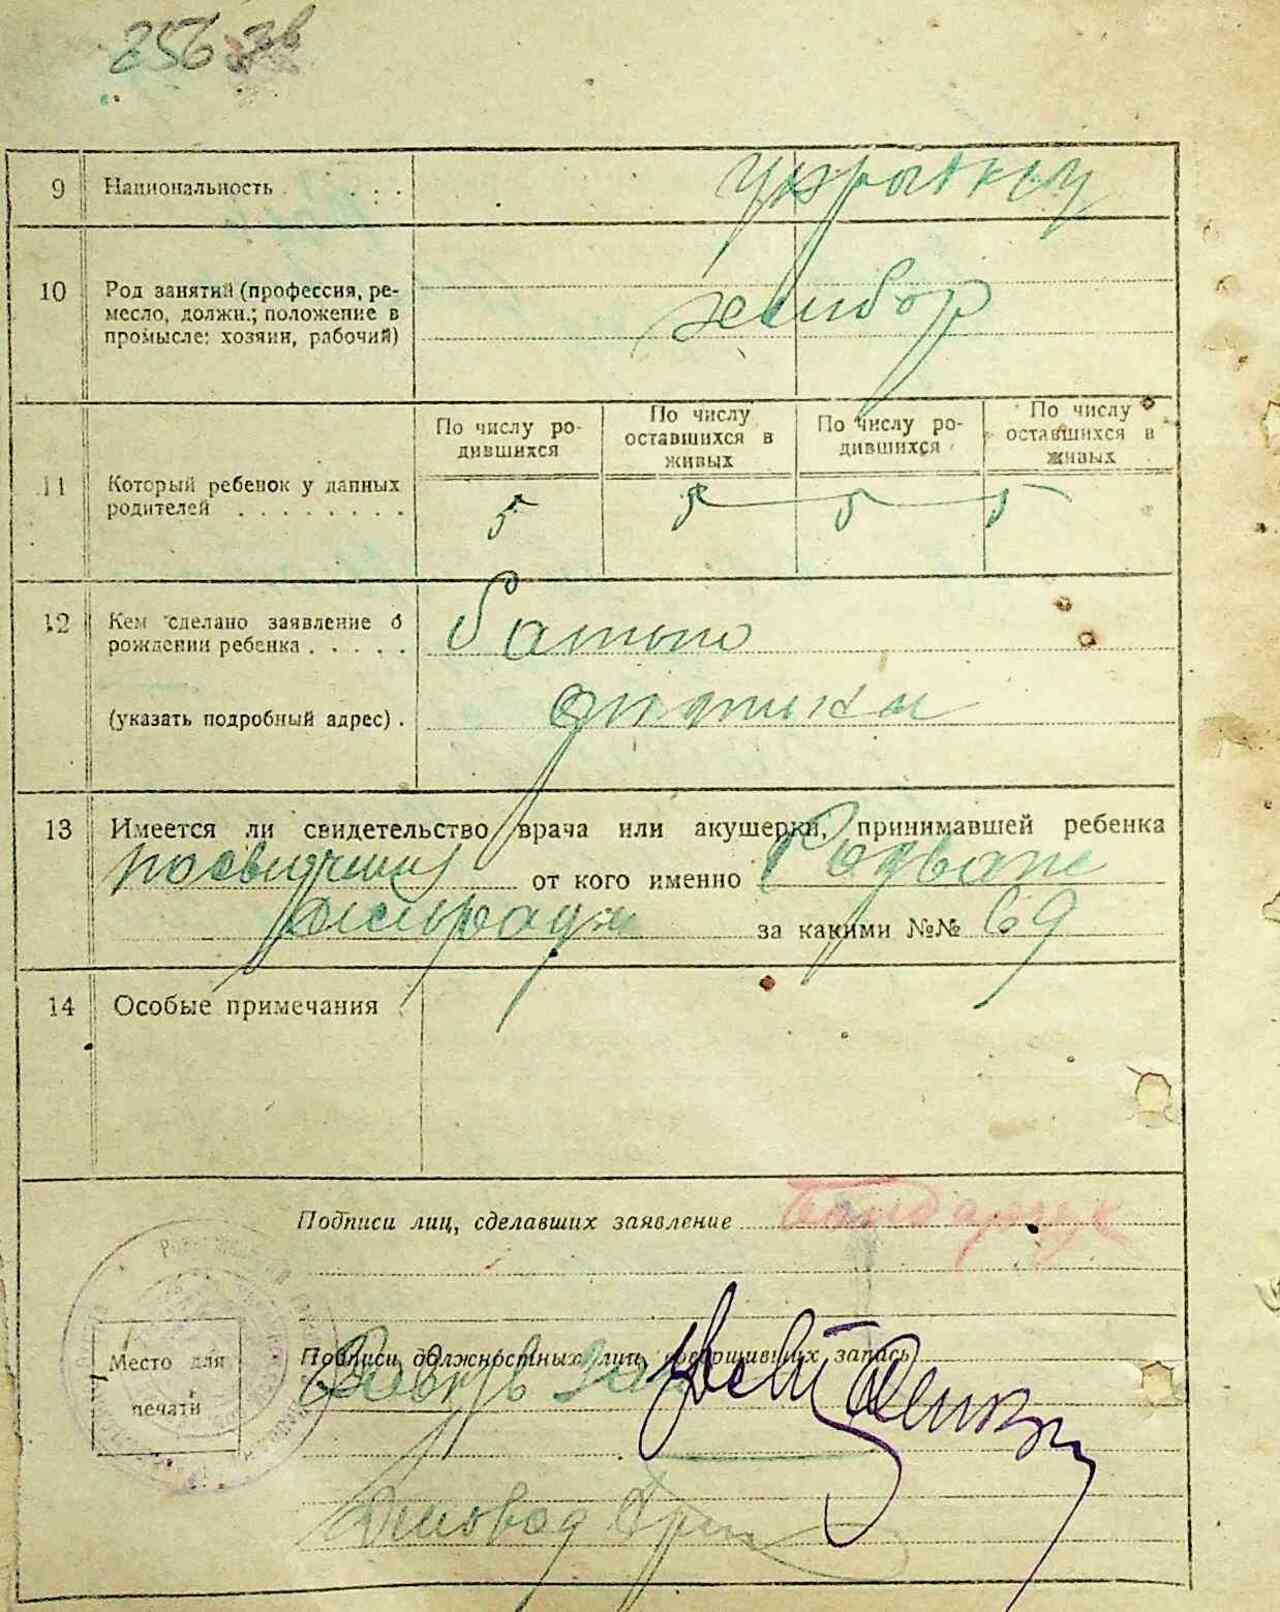 256 зв
9 Национальность . . . .
10 Род занятий (профессия, ре-
месло, должн.; положение в
промысле: хозяин, рабочий)
хлибор
По числу ро-
дившихся
По числу
оставшихся в
живых
По числу ро-
дившихся
По числу
оставшихся в
живых
11 Который ребенок у данных
родителей . . . . . . . .
5 5 5 5
12 Кем сделано заявление о
рождении ребенка . . . . .
батько
(указать подробный адрес) .
дитини
13 Имеется ли свидетельство врача или акушерки, принимавшей ребенка
от кого именно
за какими №№ 69
14 Особые примечания
Подписи лиц, сделавших заявление Бондарчук
Место для
печати
Подписи должностных лиц, совершивших запись
Диловод